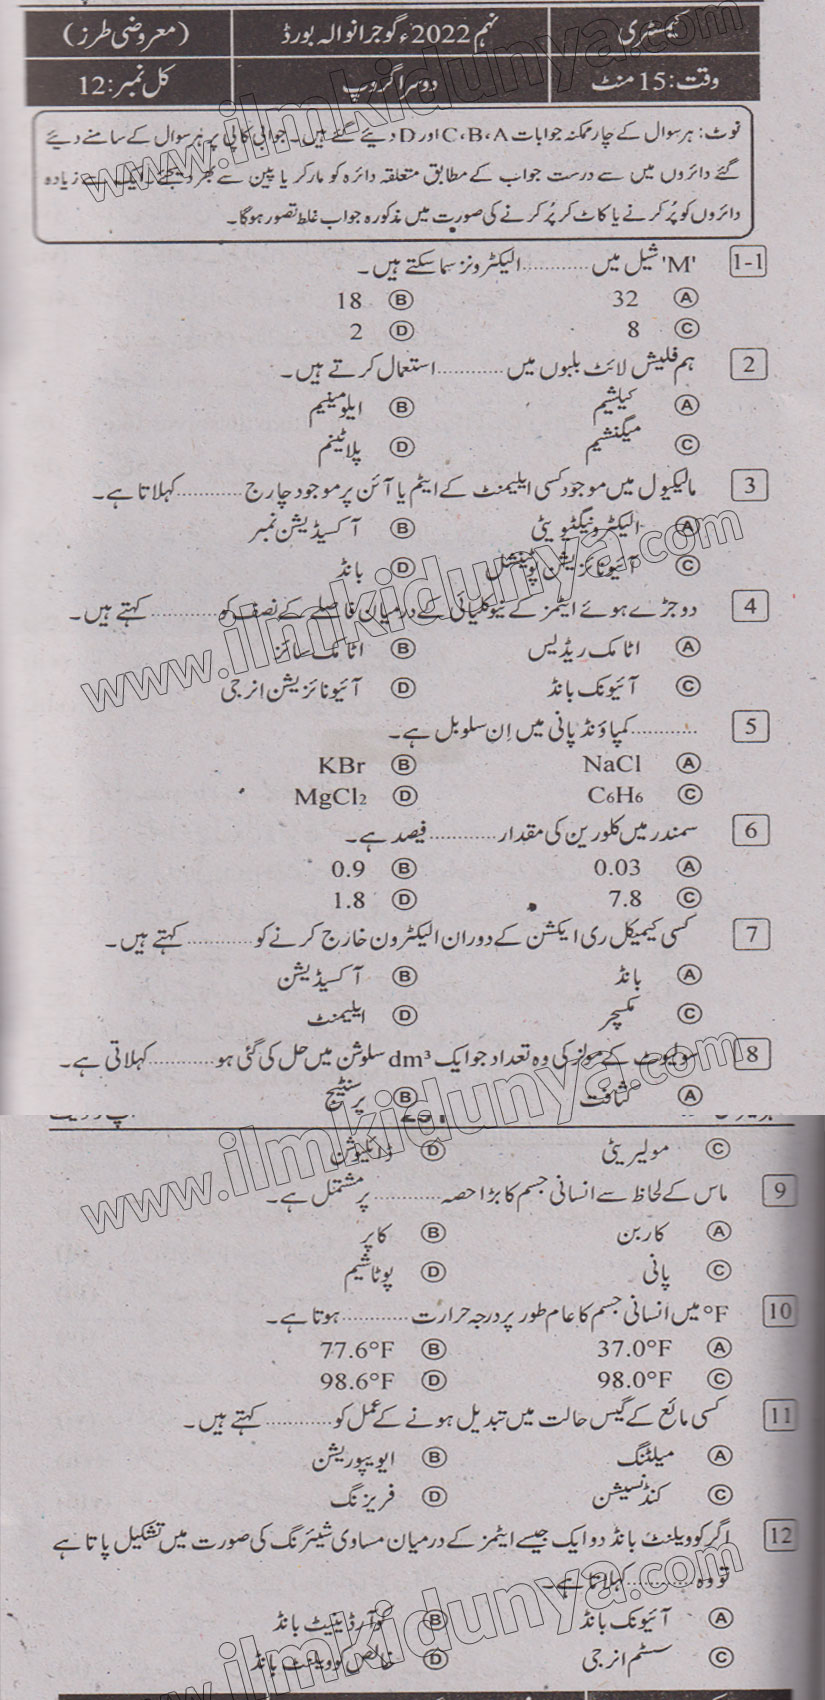 کیمسٹری نہم 2022ء گوجرانوالہ بورڈ (معروضی طرز)
وقت: 15 منٹ دوسرا گروپ کل نمبر: 12
نوٹ: ہر سوال کے چار ممکنہ جوابات C،B،A اور D دیئے گئے ہیں۔ جوابی کاپی پر ہر سوال کے سامنے دیئے
گئے دائروں میں سے درست جواب کے مطابق متعلقہ دائرہ کو مارکر یا پین سے بھر دیجئے۔ ایک سے زیادہ
دائروں کو پُر کرنے یا کاٹ کر پُر کرنے کی صورت میں مذکورہ جواب غلط تصور ہوگا۔
1-1 'M' شیل میں ........... الیکٹرونز سما سکتے ہیں۔
A 32 B 18
C 8 D 2
2 ہم فلیش لائٹ بلبوں میں ........... استعمال کرتے ہیں۔
A کیلشیم B ایلومینیم
C میگنشیم D پلاٹینم
3 مالیکیول میں موجود کسی ایلیمنٹ کے ایٹم یا آئن پر موجود چارج ........... کہلاتا ہے۔
A الیکٹرونیگٹیویٹی B آکسیڈیشن نمبر
C آئیونائزیشن پوٹینشل D بانڈ
4 دو جڑے ہوئے ایٹمز کے نیوکلیائی کے درمیان فاصلے کے نصف کو ........... کہتے ہیں۔
A اٹامک ریڈیس B اٹامک سائز
C آئیونک بانڈ D آئیونائزیشن انرجی
5 ........... کمپاؤنڈ پانی میں اِن سلوبل ہے۔
A NaCl B KBr
C C₆H₆ D MgCl₂
6 سمندر میں کلورین کی مقدار ........... فیصد ہے۔
A 0.03 B 0.9
C 7.8 D 1.8
7 کسی کیمیکل ری ایکشن کے دوران الیکٹرون خارج کرنے کو ........... کہتے ہیں۔
A بانڈ B آکسیڈیشن
C مکسچر D ایلیمنٹ
8 سولیوٹ کے مولز کی وہ تعداد جو ایک dm³ سلوشن میں حل کی گئی ہو ........... کہلاتی ہے۔
A کثافت B پرسنٹیج
C مولیریٹی D ڈائلیوشن
9 ماس کے لحاظ سے انسانی جسم کا بڑا حصہ ........... پر مشتمل ہے۔
A کاربن B کاپر
C پانی D پوٹاشیم
10 °F میں انسانی جسم کا عام طور پر درجہ حرارت ........... ہوتا ہے۔
A 37.0°F B 77.6°F
C 98.0°F D 98.6°F
11 کسی مائع کے گیس حالت میں تبدیل ہونے کے عمل کو ........... کہتے ہیں۔
A میلٹنگ B ایویپوریشن
C کنڈنسیشن D فریزنگ
12 اگر کوویلنٹ بانڈ دو ایک جیسے ایٹمز کے درمیان مساوی شیئرنگ کی صورت میں تشکیل پاتا ہے
تو وہ ........... کہلاتا ہے۔
A آئیونک بانڈ B کوآرڈینیٹ بانڈ
C سسٹم انرجی D خالص کوویلنٹ بانڈ
www.ilmkidunya.com
www.ilmkidunya.com
www.ilmkidunya.com
www.ilmkidunya.com